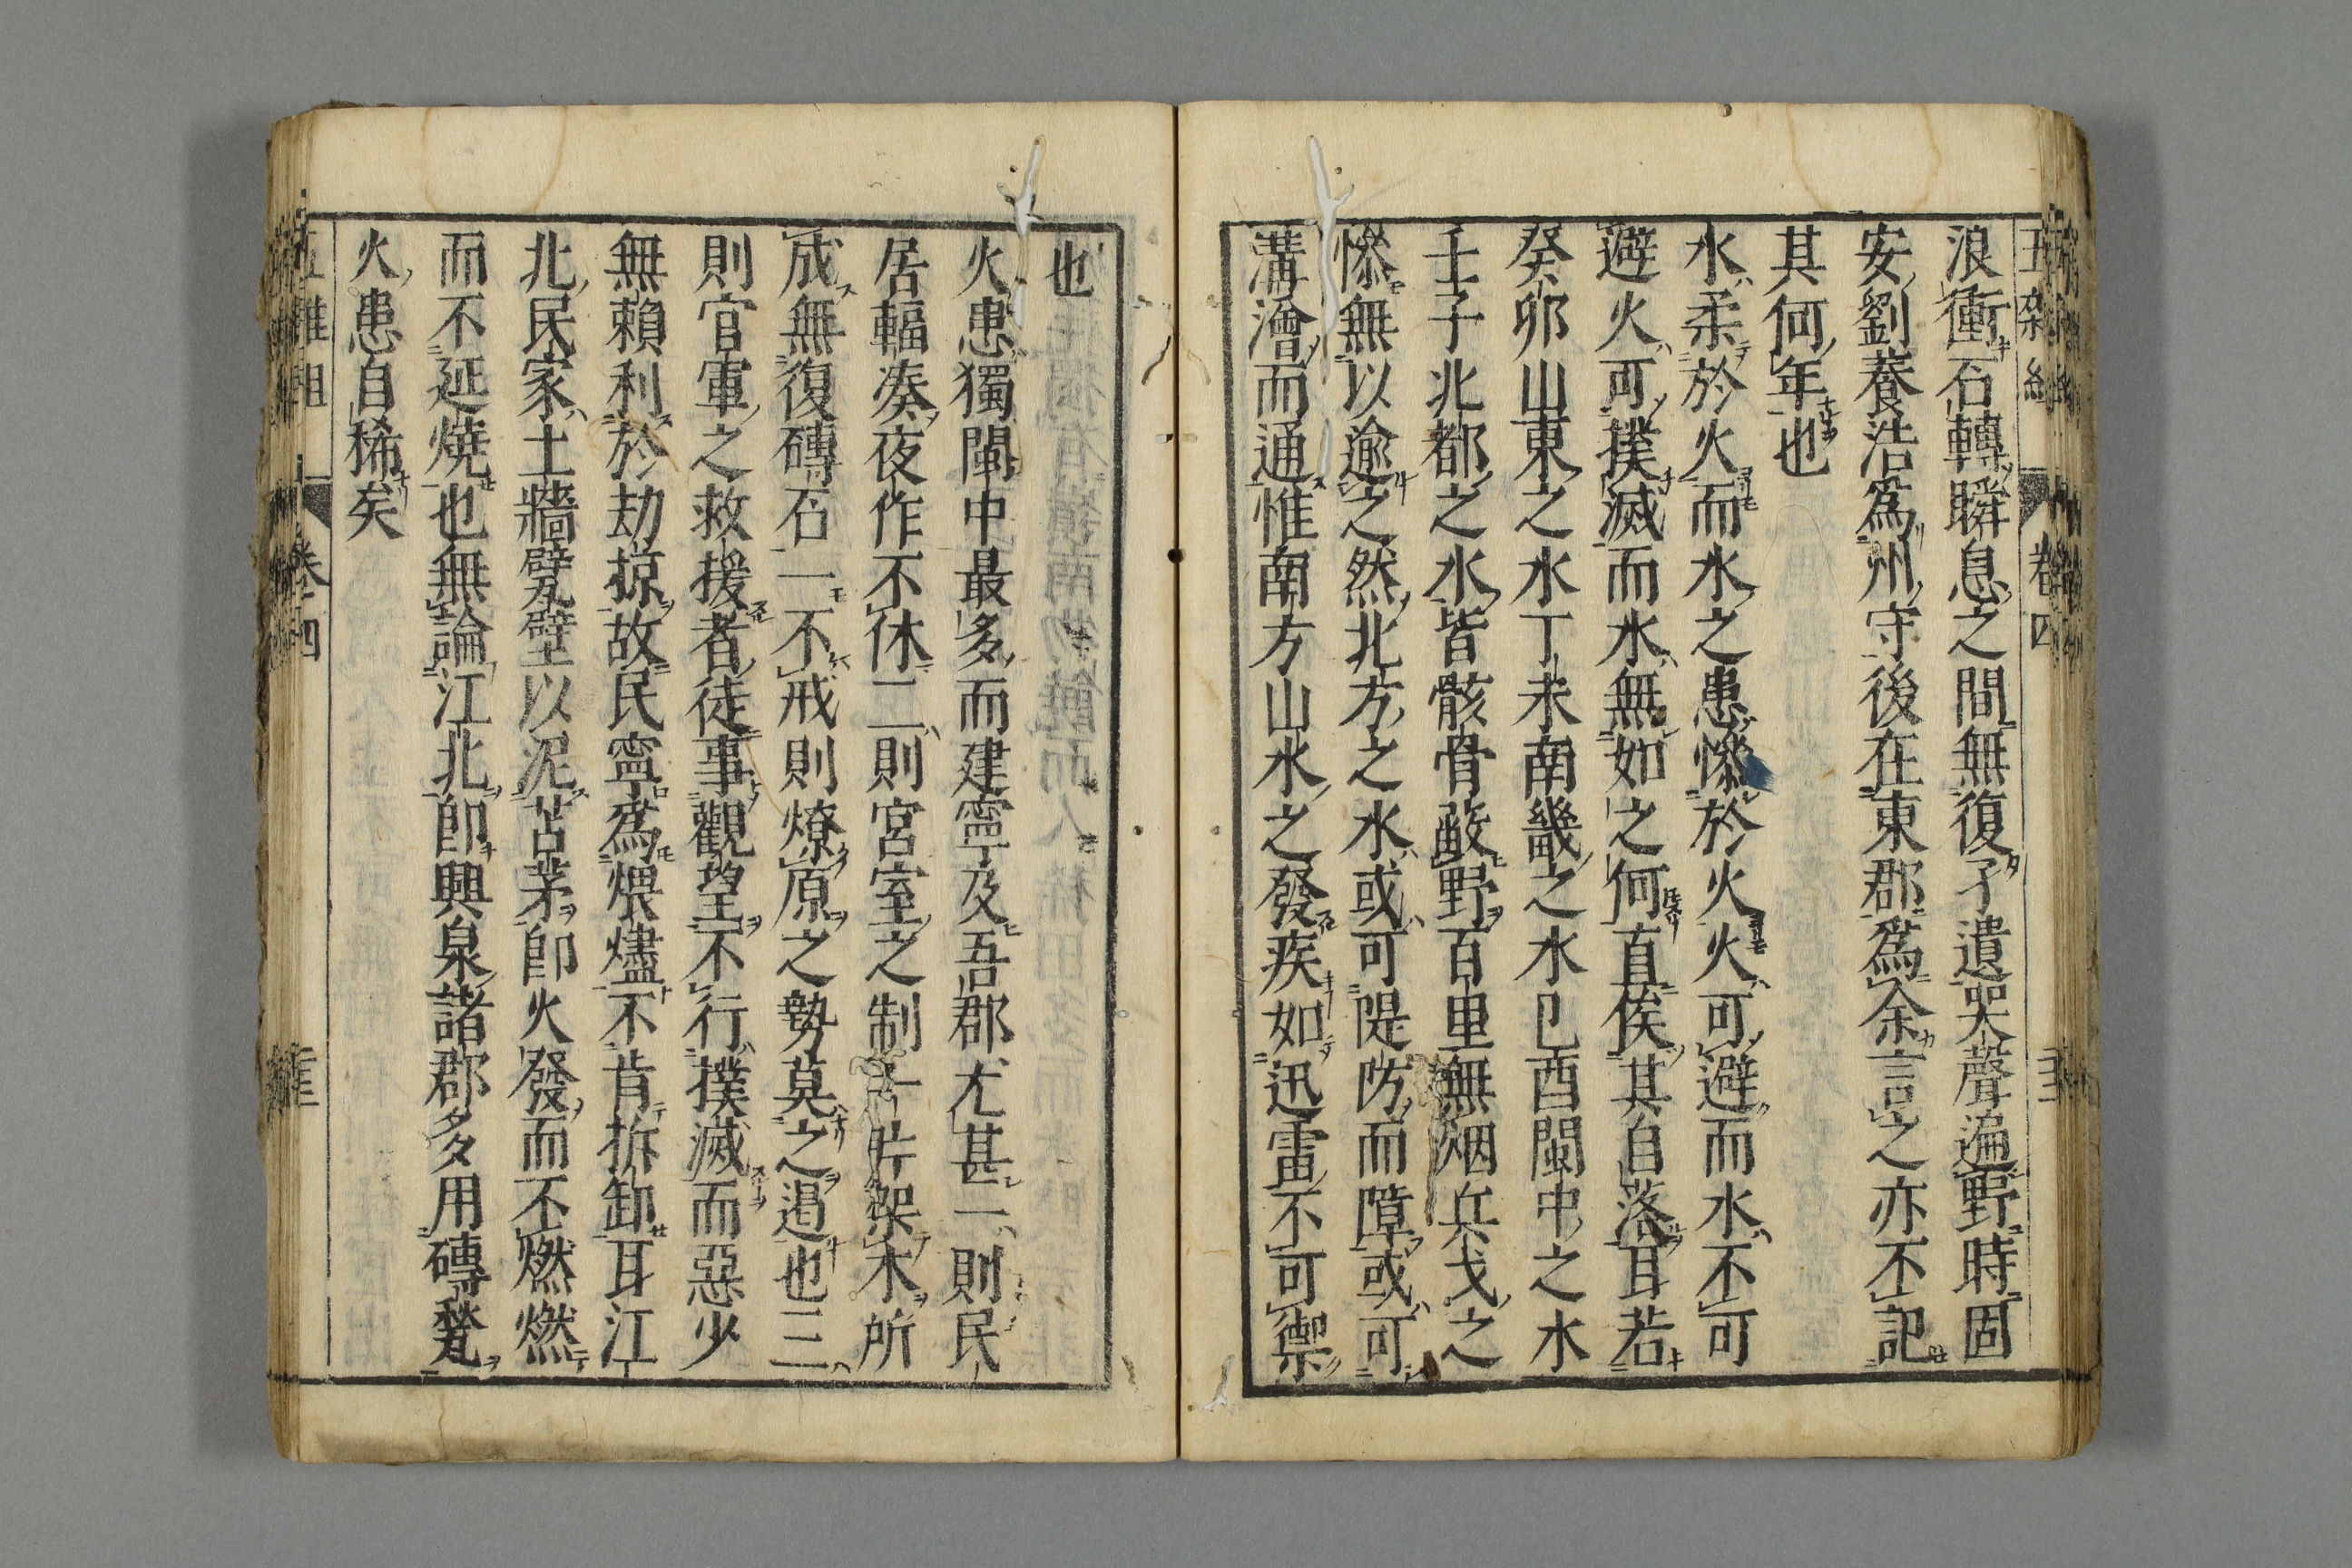 浪衝石轉瞬息之間無復孑遺哭聲遍野時固
安劉養浩爲州守後在東郡爲余言之亦不記
其何年也
水柔於火而水之患慘於火火可避而水不可
避火可撲滅而水無如之何直俟其自落耳若
癸卯山東之水丁未南畿之水己酉閩中之水
壬子北都之水皆骸骨蔽野百里無烟兵戈之
慘無以逾之然北方之水或可隄防而障或可
溝澮而通惟南方山水之發疾如迅雷不可禦
也
火患獨閩中最多而建寧及吾郡尤甚一則民
居輻湊夜作不休二則宮室之制一片架木所
成無復磚石一不戒則燎原之勢莫之遏也三
則官軍之救援者徒事觀望不行撲滅而惡少
無賴利於劫掠故民寧爲煨燼不肯拆卸耳江
北民家土牆甓壁以泥苫茅卽火發而不燃燃
而不延燒也無論江北卽興泉諸郡多用磚甃
火患自稀矣
卷四